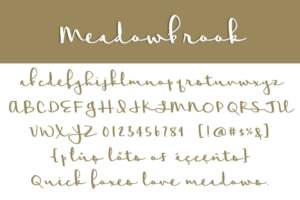 Meadowbrook
abcdefghijklmnopqrstuvwxyz
ABCDEFGHIJKLMNOPQRSTU
VWXYZ 0123456789 [!@#$%&]
{plüs lôts of áccents}
Quick foxes love meadows.